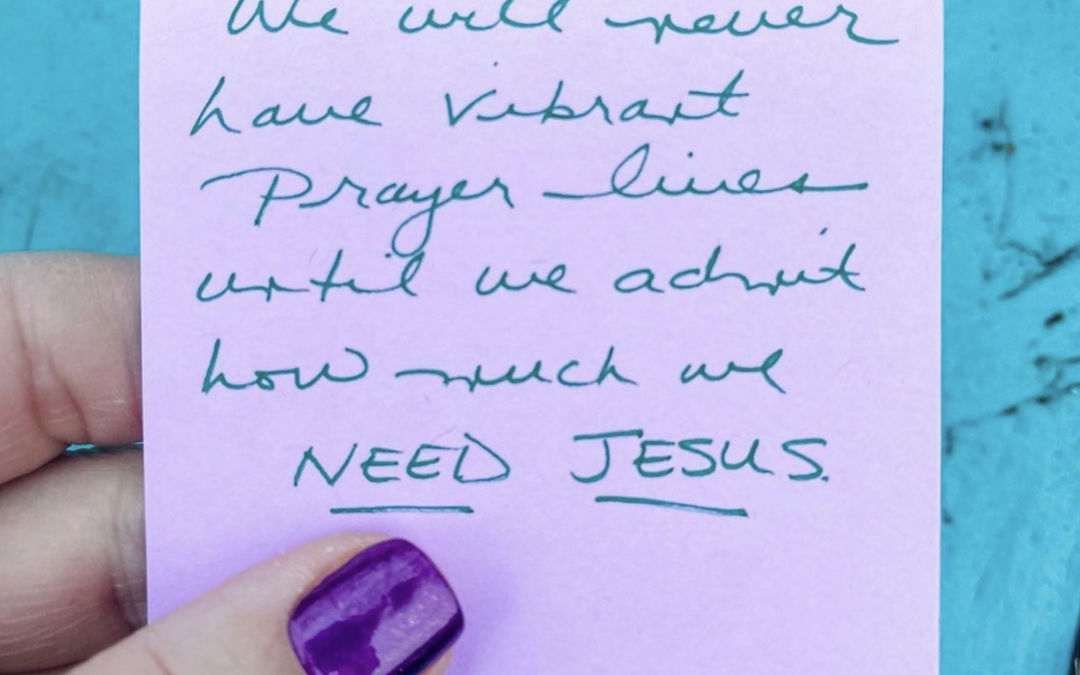 We will never
have vibrant
Prayer lives
until we admit
how much we
NEED JESUS.